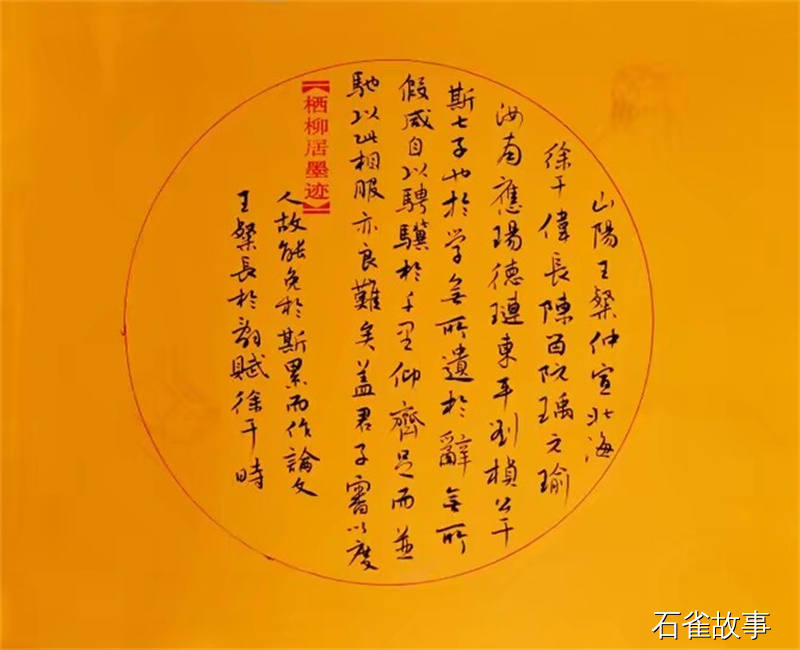 山陽王粲仲宣北海
徐干偉長陳留阮瑀元瑜
汝南應瑒德璉東平刘楨公干
斯七子也於学無所遺於辭無所
假咸自以騁驥於千里仰齊足而並
馳以此相服亦良難矣盖君子審以度
人故能免於斯累而作論文
王粲長於辞賦徐干時
【栖柳居墨迹】
石雀故事